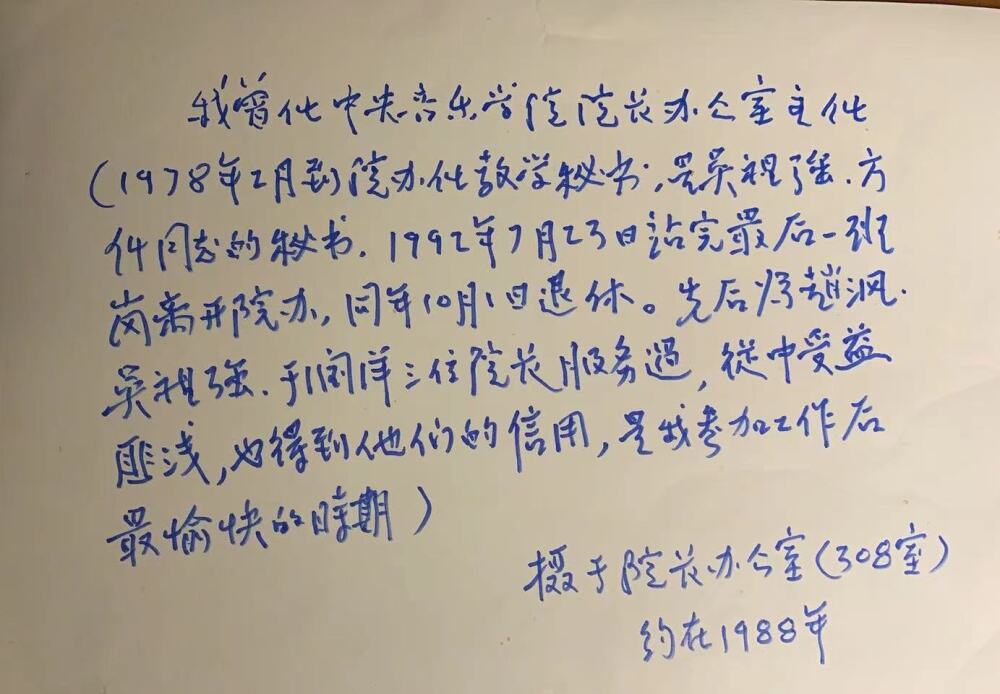 我曾任中央音乐学院院长办公室主任
(1978年2月到院办任教学秘书,是吴祖强.方
件同志的秘书.1992年7月23日站完最后一班
岗离开院办,同年10月1日退休。先后为趙沨.
吴祖强.于润洋三位院长服务過,從中受益
匪浅,也得到他们的信用,是我参加工作后
最愉快的時期)
摄于院长办公室(308室)
约在1988年